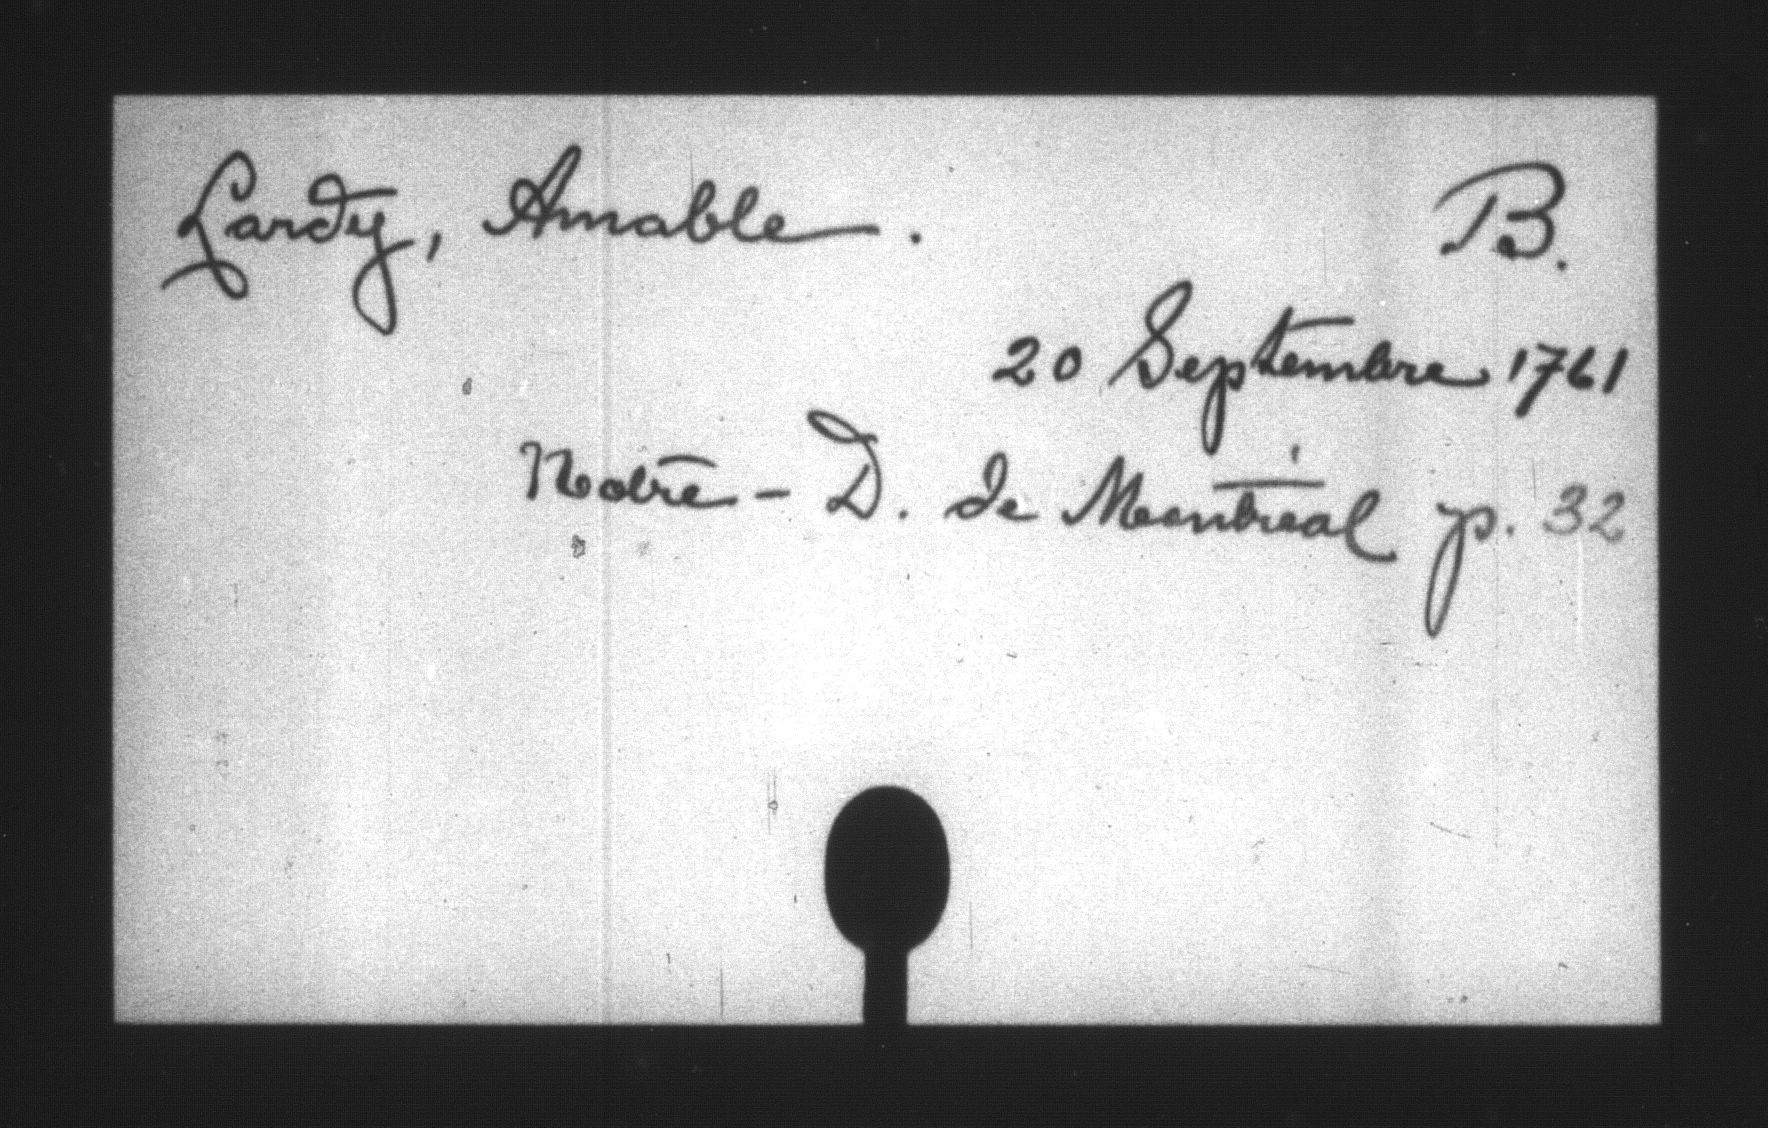 Lardy, Amable. B.
20 Septembre 1761
Notre-D. de Montréal p. 32